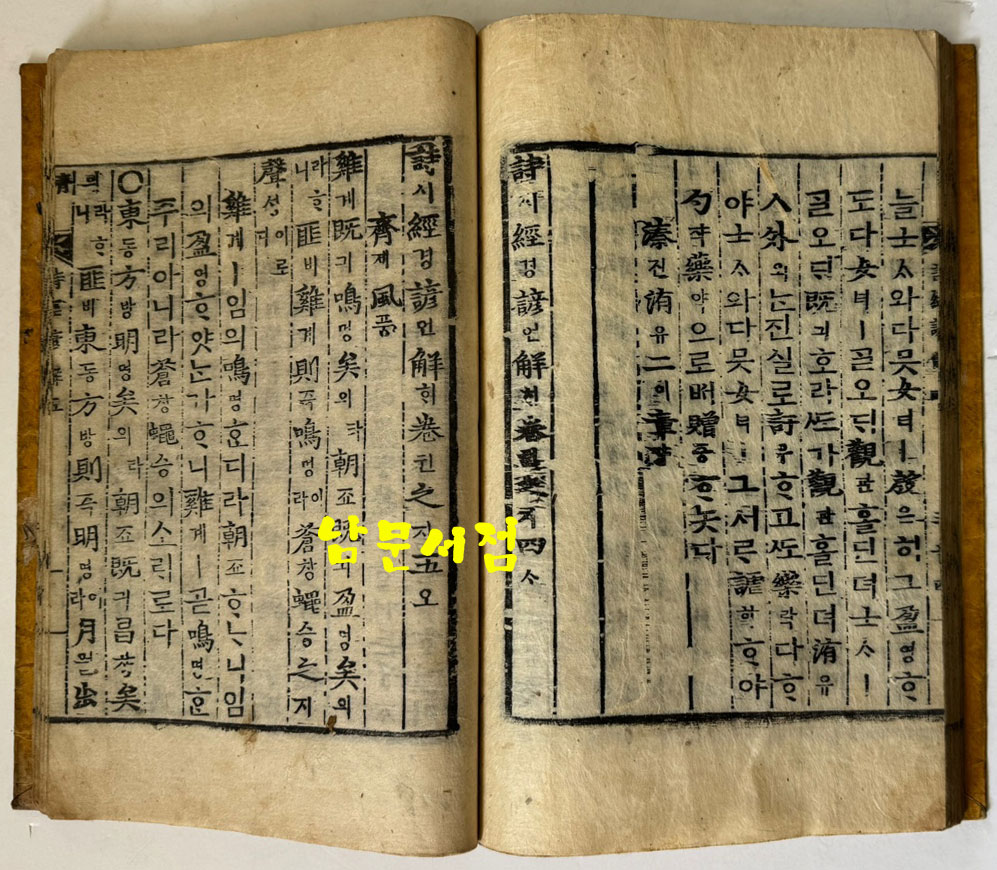 늘士ᄉᆞ와다ᄆᆞᆺ女녀ㅣ殷은히그盈영ᄒᆞ
도다女녀ㅣᄀᆞᆯ오ᄃᆡᆫ觀관ᄒᆞᆯ딘뎌士ᄉᆞㅣ
ᄀᆞᆯ오ᄃᆡᆫ既긔호라ᄯᅩ가觀관ᄒᆞᆯ딘뎌洧유
ㅅ外외ᄂᆞᆫ진실로訏우ᄒᆞ고ᄯᅩ樂락다ᄒᆞ
야士ᄉᆞ와다ᄆᆞᆺ女녀ㅣ그서ᄅᆞ謔학ᄒᆞ야
勺쟉藥약으로ᄡᅥ贈증ᄒᆞ놋다
溱진洧유二이章쟝
詩시經경諺언解ᄒᆡ卷권之지四ᄉᆞ
詩시經경諺언解ᄒᆡ卷권之지五오
齊제風풍
雞계既긔鳴명矣의라朝죠既긔盈영矣의
라ᄒᆞ니匪비雞계則즉鳴명이라蒼창蠅승之지
聲셩이로다
雞계ㅣ임의鳴명ᄒᆞᆫ디라朝죠ᄒᆞᄂᆞ니임
의盈영ᄒᆞ얏ᄂᆞᆫ가ᄒᆞ니雞계ㅣ곧鳴명ᄒᆞᆫ
주리아니라蒼창蠅승의소ᄅᆡ로다
○東동方방明명矣의라朝죠既긔昌챵矣
의라ᄒᆞ니匪비東동方방則즉明명이라月월出
남문서점